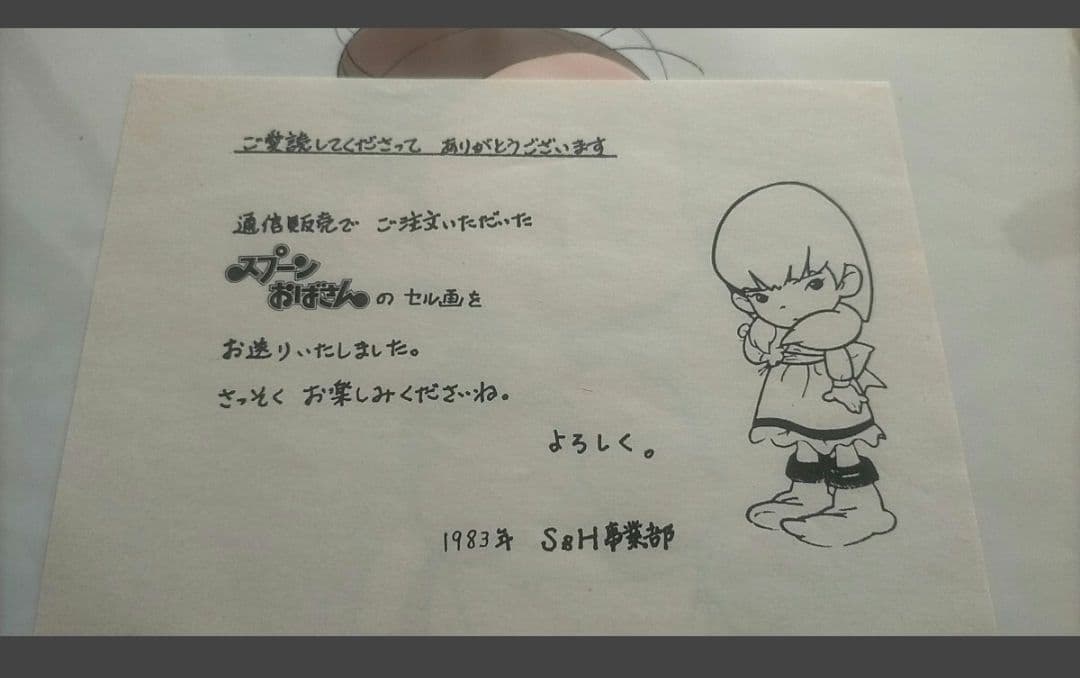 ご愛読してくださって ありがとうございます
通信販売で ご注文いただいた
スプーン
おばさん の セル画を
お送りいたしました。
さっそく お楽しみくださいね。
よろしく。
1983年 S&H事業部